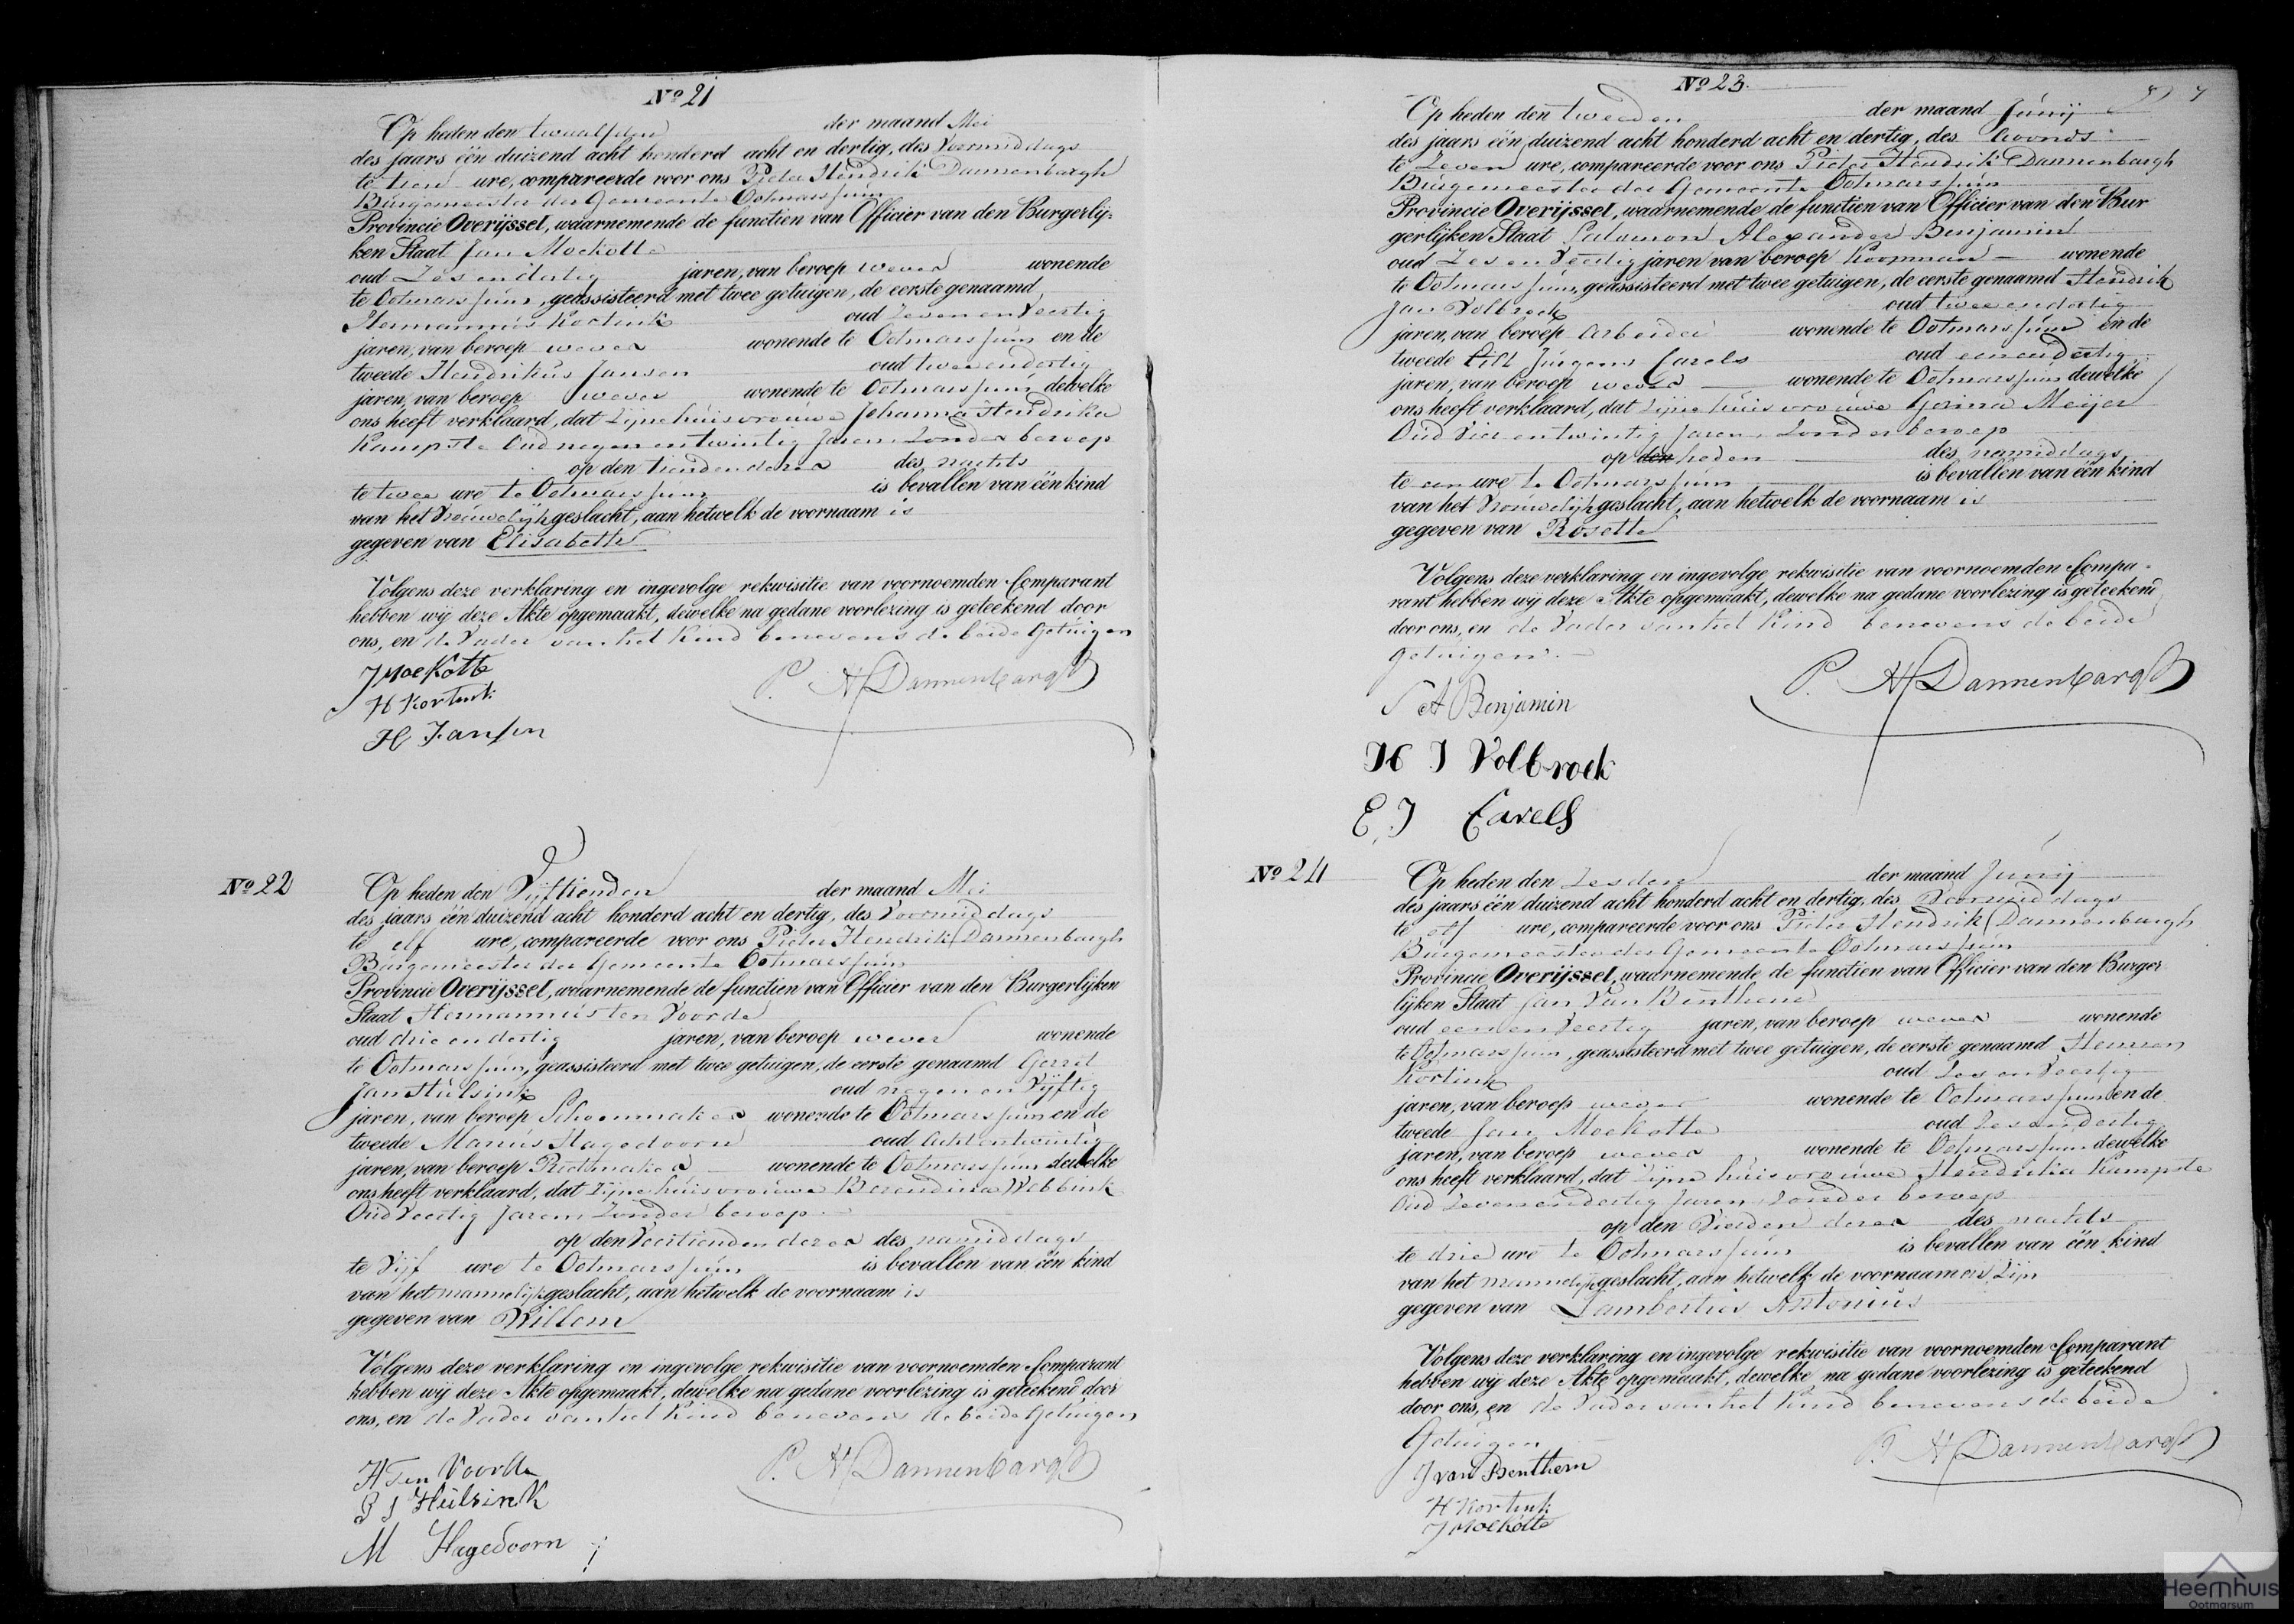 Nº 21
Op heden den twaalfden der maand Mei
des jaars één duizend acht honderd acht en dertig, des Voormiddags
te tien ure, compareerde voor ons Pieter Hendrik Dannenbargh
Burgemeester der Gemeente Ootmarssum
Provincie Overijssel, waarnemende de functien van Officier van den Burgerlij-
ken Staat Jan Moekotte
oud Zes en dertig jaren, van beroep wever wonende
te Ootmarssum, geassisteerd met twee getuigen, de eerste genaamd
Hermannus Kortink oud Zeven en Veertig
jaren, van beroep wever wonende te Ootmarssum en de
tweede Hendrikus Jansen oud twee en dertig
jaren, van beroep wever wonende te Ootmarssum dewelke
ons heeft verklaard, dat Zijne huisvrouwe Johanna Hendrika
Kampste Oud negen en twintig Jaren, Zonder beroep
op den tienden dezer des nachts
te twee ure te Ootmarssum is bevallen van één kind
van het Vrouwelijk geslacht, aan hetwelk de voornaam is
gegeven van Elisabeth
Volgens deze verklaring en ingevolge rekwisitie van voornoemden Comparant
hebben wij deze Akte opgemaakt, dewelke na gedane voorlezing is geteekend door
ons, en de Vader van het Kind benevens de beide Getuigen
J Moekotte
H Kortink
H Jansen
P. H Dannenbargh
Nº 22
Op heden den Vijftienden der maand Mei
des jaars één duizend acht honderd acht en dertig, des Voormiddags
te elf ure, compareerde voor ons Pieter Hendrik Dannenbargh
Burgemeester der Gemeente Ootmarssum
Provincie Overijssel, waarnemende de functien van Officier van den Burgerlijken
Staat Hermannus ten Voorde
oud drie en dertig jaren, van beroep wever wonende
te Ootmarssum, geassisteerd met twee getuigen, de eerste genaamd Gerrit
Jan Hulsink oud negen en Vijftig
jaren, van beroep Schoenmaker wonende te Ootmarssum en de
tweede Marius Hagedoorn oud Acht en twintig
jaren, van beroep wonende te Ootmarssum dewelke
ons heeft verklaard, dat Zijne huisvrouwe Berendina Webbink
Oud Veertig Jaren, Zonder beroep
op den Veertienden dezer des namiddags
te Vijf ure te Ootmarssum is bevallen van één kind
van het mannelijk geslacht, aan hetwelk de voornaam is
gegeven van Willem
Volgens deze verklaring en ingevolge rekwisitie van voornoemden Comparant
hebben wij deze Akte opgemaakt, dewelke na gedane voorlezing is geteekend door
ons, en de Vader van het Kind benevens de beide Getuigen
H Ten Voorde
G J Hülsink
M Hagedoorn
P. H Dannenbargh
Nº 23.
Op heden den tweeden der maand Junij
des jaars één duizend acht honderd acht en dertig, des Avonds
te Zeven ure, compareerde voor ons Pieter Hendrik Dannenbargh
Burgemeester der Gemeente Ootmarssum
Provincie Overijssel, waarnemende de functien van Officier van den Bur
gerlijken Staat Salomon Alexander Benjamin
oud Zes en Veertig jaren van beroep Koopman wonende
te Ootmarssum, geassisteerd met twee getuigen, de eerste genaamd Hendrik
Jan Volbroek oud twee en dertig
jaren, van beroep Arbeider wonende te Ootmarssum en de
tweede Jurgens Carels oud een en dertig
jaren, van beroep wever wonende te Ootmarssum dewelke
ons heeft verklaard, dat Zijne huisvrouwe Meijer
Oud Vier en twintig Jaren, Zonder beroep
op den heden des namiddags
te een ure te Ootmarssum is bevallen van één kind
van het Vrouwelijk geslacht, aan hetwelk de voornaam is
gegeven van Rosette
Volgens deze verklaring en ingevolge rekwisitie van voornoemden Compa-
rant hebben wij deze Akte opgemaakt, dewelke na gedane voorlezing is geteekend
door ons, en de Vader van het Kind benevens de beide
Getuigen.
S A Benjamin
H J Volbroek
E. J Carels
P. H Dannenbargh
Nº 24
Op heden den Zesden der maand Junij
des jaars één duizend acht honderd acht en dertig, des Voormiddags
te elf ure, compareerde voor ons Pieter Hendrik Dannenbargh
Burgemeester der Gemeente Ootmarssum
Provincie Overijssel, waarnemende de functien van Officier van den Burger
lijken Staat Jan Van Benthem
oud een en Veertig jaren, van beroep wever wonende
te Ootmarssum, geassisteerd met twee getuigen, de eerste genaamd Herman
Kortink oud Zes en Veertig
jaren, van beroep wever wonende te Ootmarssum en de
tweede Jan Moekotte oud Zes en dertig
jaren, van beroep wever wonende te Ootmarssum dewelke
ons heeft verklaard, dat Zijne huisvrouwe Hendrika Kampste
Oud Zeven en dertig Jaren, Zonder beroep
op den Vierden dezer des nachts
te drie ure te Ootmarssum is bevallen van één kind
van het mannelijk geslacht, aan hetwelk de voornaamen Zijn
gegeven van Lambertus Antonius
Volgens deze verklaring en ingevolge rekwisitie van voornoemden Comparant
hebben wij deze Akte opgemaakt, dewelke na gedane voorlezing is geteekend
door ons, en de Vader van het Kind benevens de beide
Getuigen
J van Benthem
H Kortink
J Moekotte
P. H Dannenbargh
Heemhuis
Ootmarsum